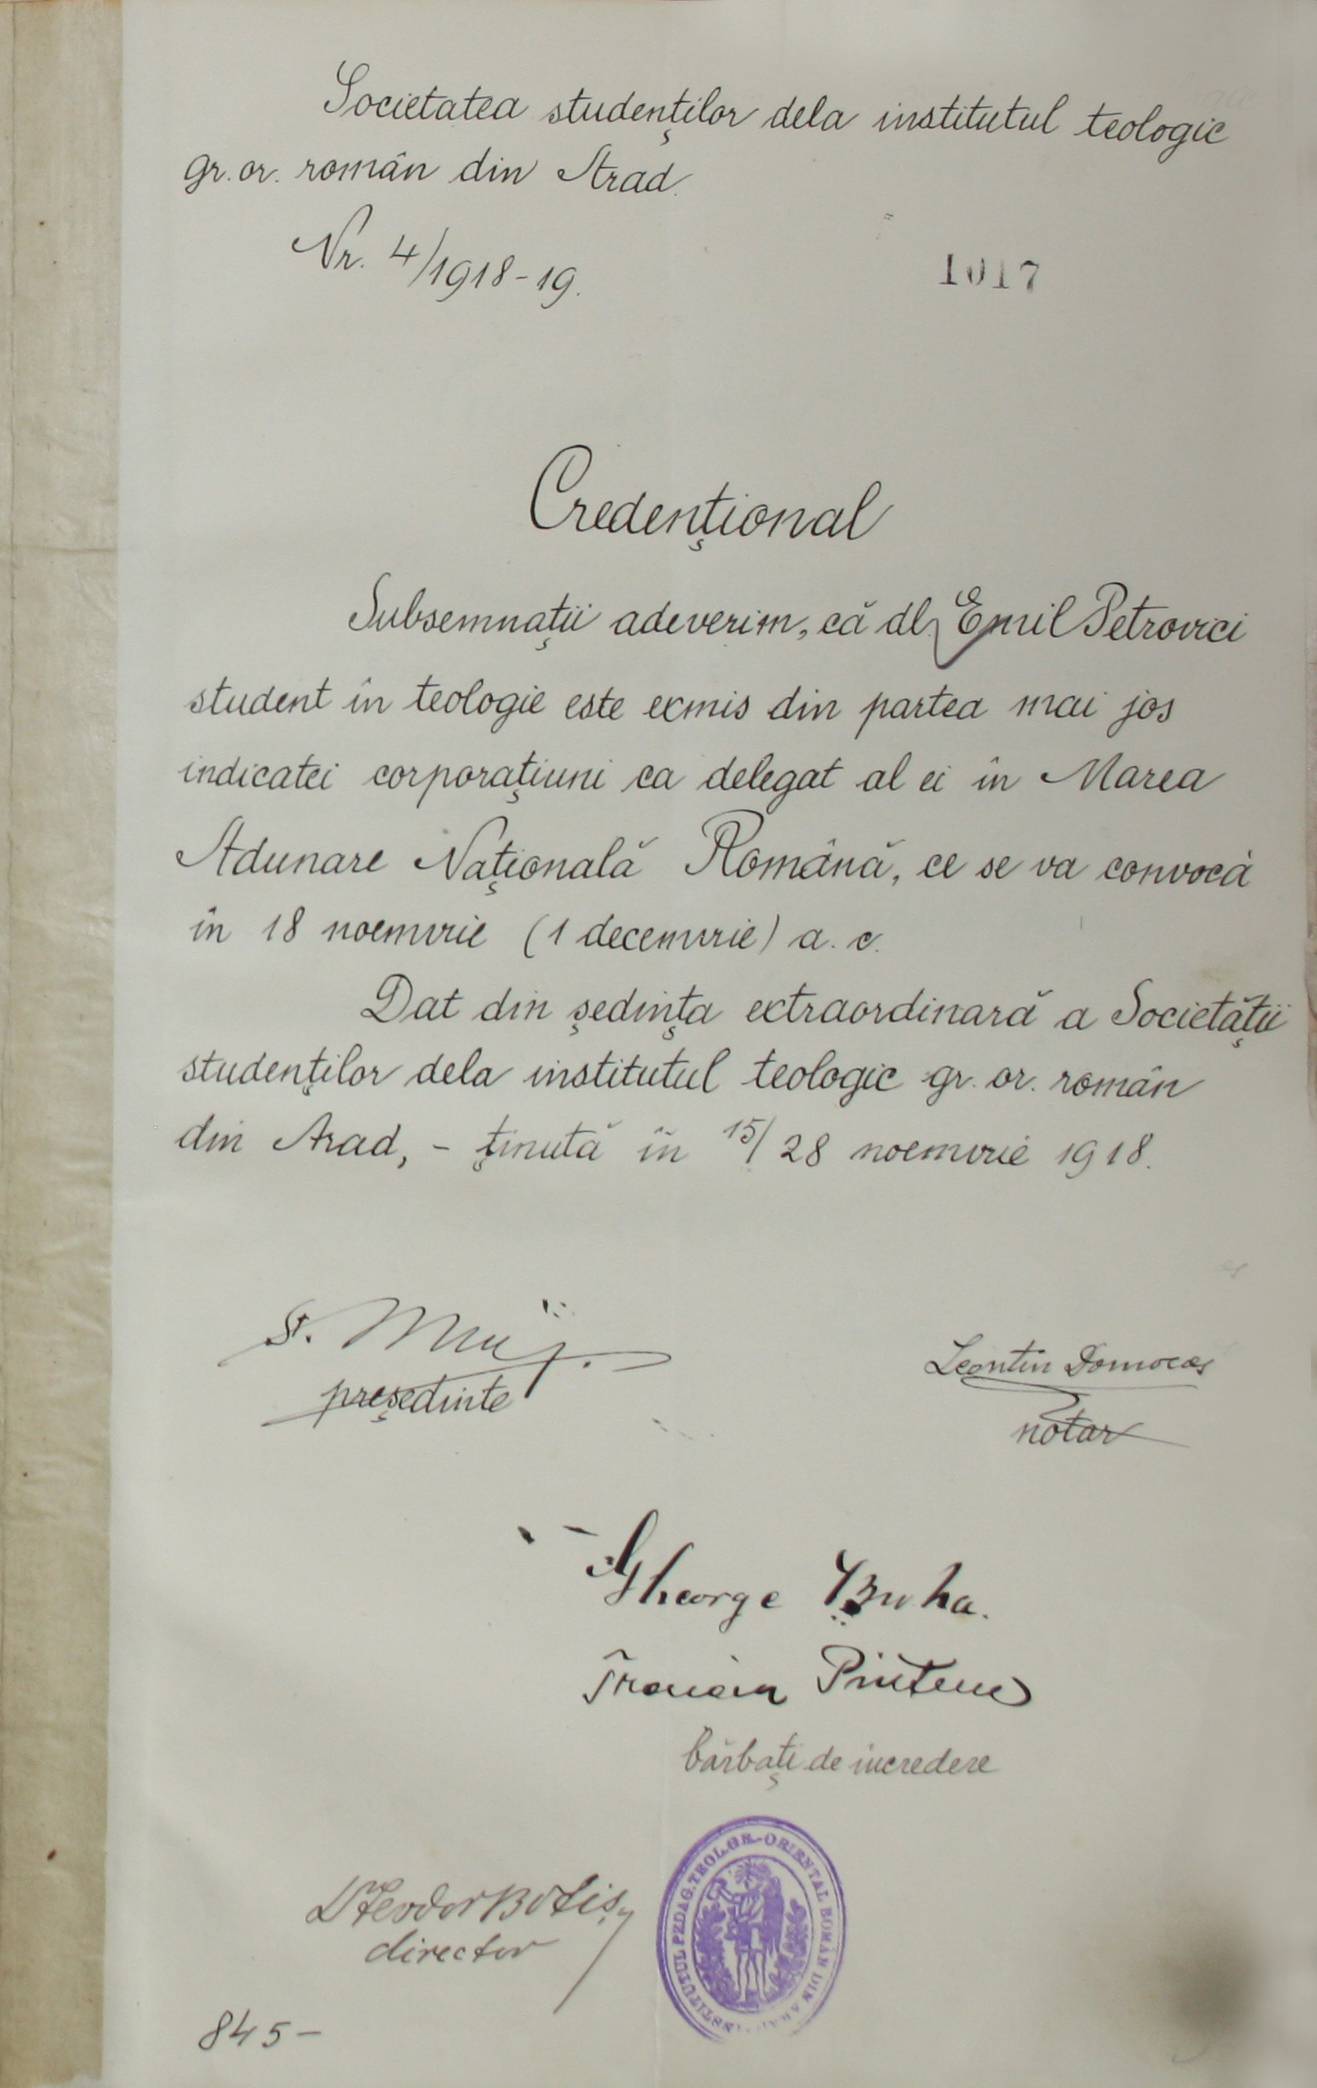 Societatea studenţilor dela institutul teologic
gr. or. român din Arad.
Nr. 4/1918-19.
1017
Credenţional
Subsemnaţii adeverim, că dl Emil Petrovici
student în teologie este exmis din partea mai jos
indicatei corporaţiuni ca delegat al ei în Marea
Adunare Naţională Română, ce se va convocà
în 18 noemvrie (1 decemvrie) a. c.
Dat din şedinţa extraordinară a Societăţii
studenţilor dela institutul teologic gr. or. român
din Arad, - ţinută în 15/28 noemvrie 1918.
preşedinte
Leontin Domocoş
notar
Gheorge Buha.
Traian Pintean
bărbaţi de incredere
INSTITUTUL PEDAG. TEOL. GR.-ORIENTAL ROMÂN DIN ARAD
Dr Teodor Botiş
director
845-